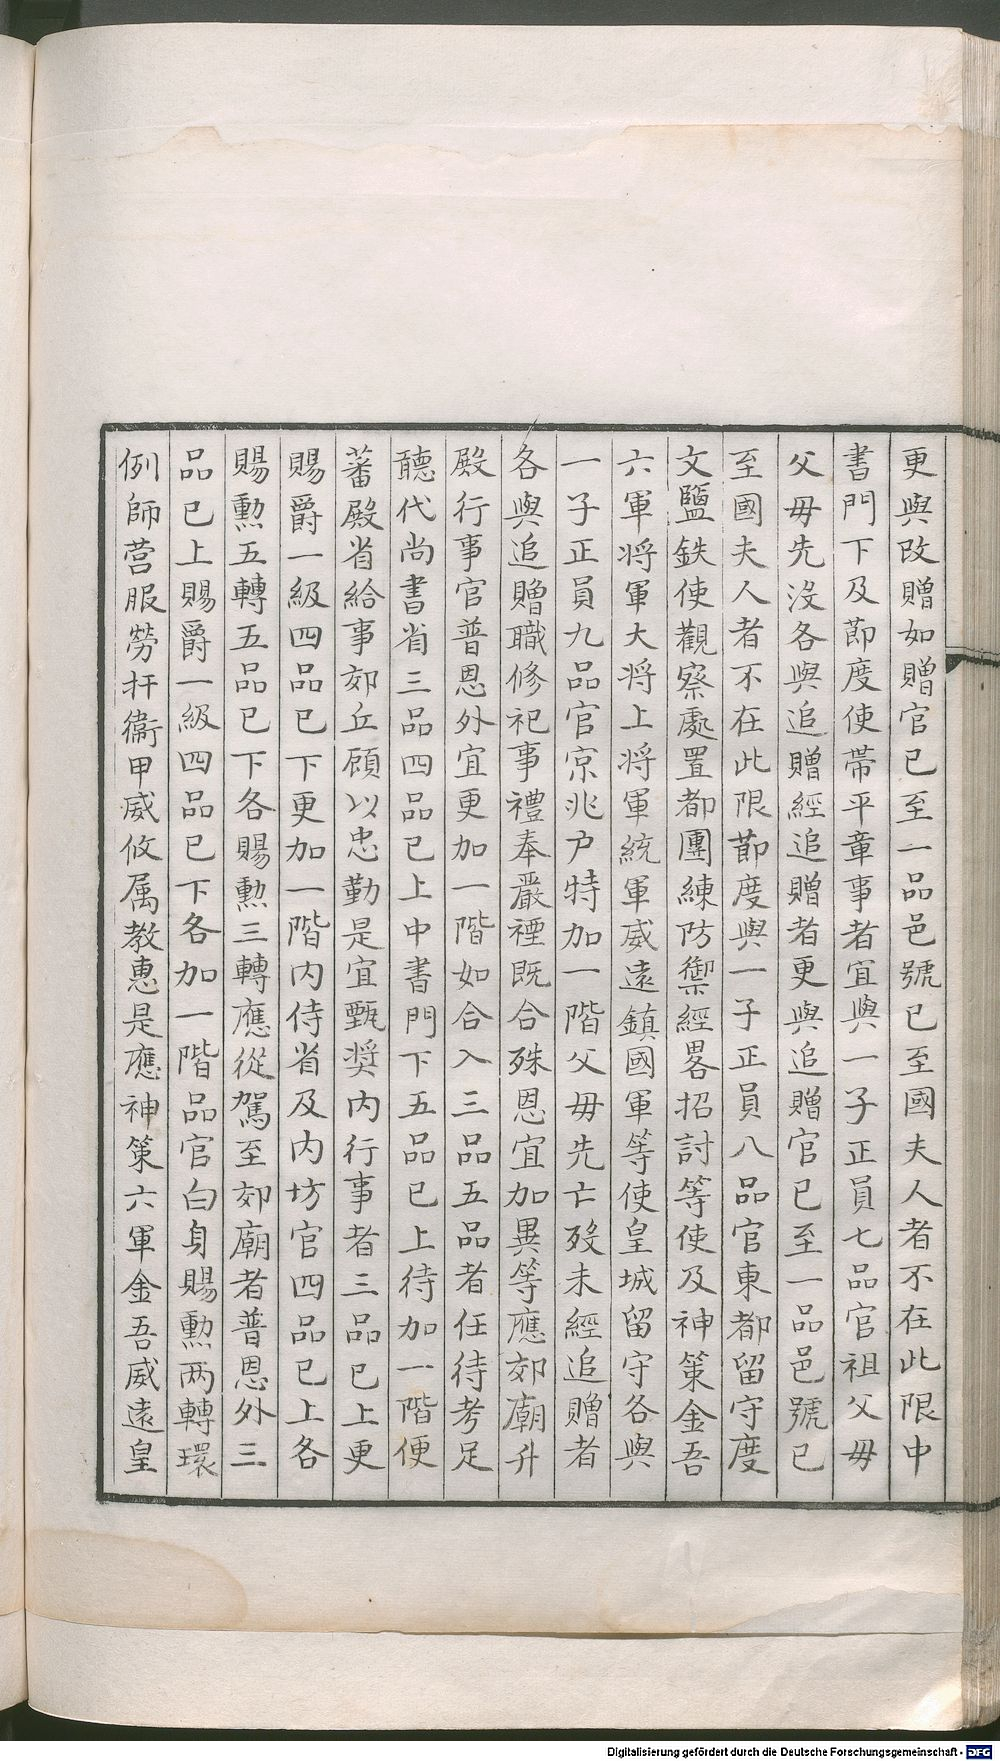 更與改贈如贈官已至一品邑號已至國夫人者不在此限中
書門下及節度使帶平章事者宜與一子正員七品官祖父母
父母先沒各與追贈經追贈者更與追贈官已至一品邑號已
至國夫人者不在此限節度與一子正員八品官東都留守度
文鹽鉄使觀察處置都團練防禦經畧招討等使及神策金吾
六軍將軍大將上將軍統軍威遠鎮國軍等使皇城留守各與
一子正員九品官京兆户特加一階父母先亡歿未經追贈者
各與追贈職修祀事禮奉嚴禋既合殊恩宜加異等應郊廟升
殿行事官普恩外宜更加一階如合入三品五品者任待考足
聽代尚書省三品四品已上中書門下五品已上待加一階便
蕃殿省給事郊丘顧以忠勤是宜甄奨内行事者三品已上更
賜爵一級四品已下更加一階内侍省及内坊官四品已上各
賜勲五轉五品已下各賜勲三轉應從駕至郊廟者普恩外三
品已上賜爵一級四品已下各加一階品官白身賜勲两轉環
例師营服勞扞衞甲威攸属教惠是應神策六軍金吾威遠皇
Digitalisierung gefördert durch die Deutsche Forschungsgemeinschaft - DFG